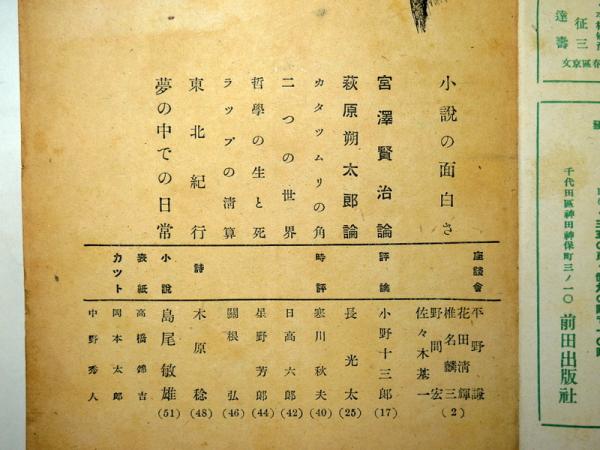 小說の面白さ
座談會
平野謙
花田清輝
椎名麟三
野間宏
佐々木基一
(2)
宮澤賢治論
評論
小野十三郎
(17)
萩原朔太郎論
長光太
(25)
カタツムリの角
時評
寒川秋夫
(40)
二つの世界
日高六郎
(42)
哲學の生と死
星野芳郎
(44)
ラップの淸算
關根弘
(46)
東北紀行
詩
木原稔
(48)
夢の中での日常
小說
島尾敏雄
(51)
表紙
高橋錦吉
カツト
岡本太郎
中野秀人
征三
達壽
千代田區神田神保町三ノ一〇
前田出版社